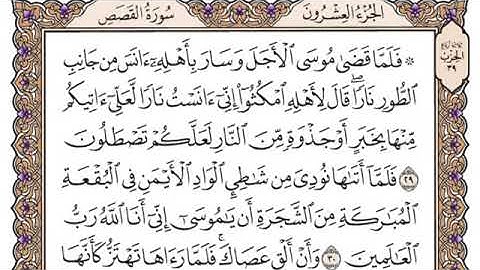 سُورَةُ القَصَصِ
الجُزْءُ العِشْرُونَ
۞ فَلَمَّا قَضَىٰ مُوسَى ٱلْأَجَلَ وَسَارَ بِأَهْلِهِۦٓ ءَانَسَ مِن جَانِبِ
ٱلطُّورِ نَارًاۖ قَالَ لِأَهْلِهِ ٱمْكُثُوٓا۟ إِنِّىٓ ءَانَسْتُ نَارًا لَّعَلِّىٓ ءَاتِيكُم
مِّنْهَا بِخَبَرٍ أَوْ جَذْوَةٍ مِّنَ ٱلنَّارِ لَعَلَّكُمْ تَصْطَلُونَ
٢٩ فَلَمَّآ أَتَىٰهَا نُودِىَ مِن شَـٰطِئِ ٱلْوَادِ ٱلْأَيْمَنِ فِى ٱلْبُقْعَةِ
ٱلْمُبَـٰرَكَةِ مِنَ ٱلشَّجَرَةِ أَن يَـٰمُوسَىٰٓ إِنِّىٓ أَنَا ٱللَّهُ رَبُّ
ٱلْعَـٰلَمِينَ ٣٠ وَأَنْ أَلْقِ عَصَاكَۚ فَلَمَّا رَءَاهَا تَهْتَزُّ كَأَنَّهَا
الحِزْب
٣٩